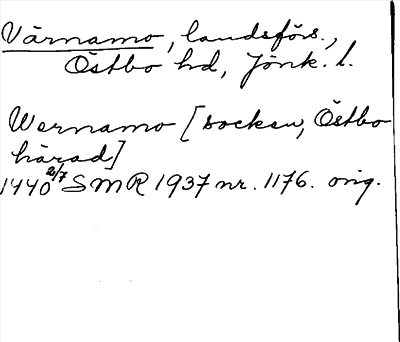 Värnamo, landsförs.,
Östbo hd, Jönk. l.
Wernamo [socken, Östbo
härad]
1440 2/7 SMR 1937 nr. 1176. orig.